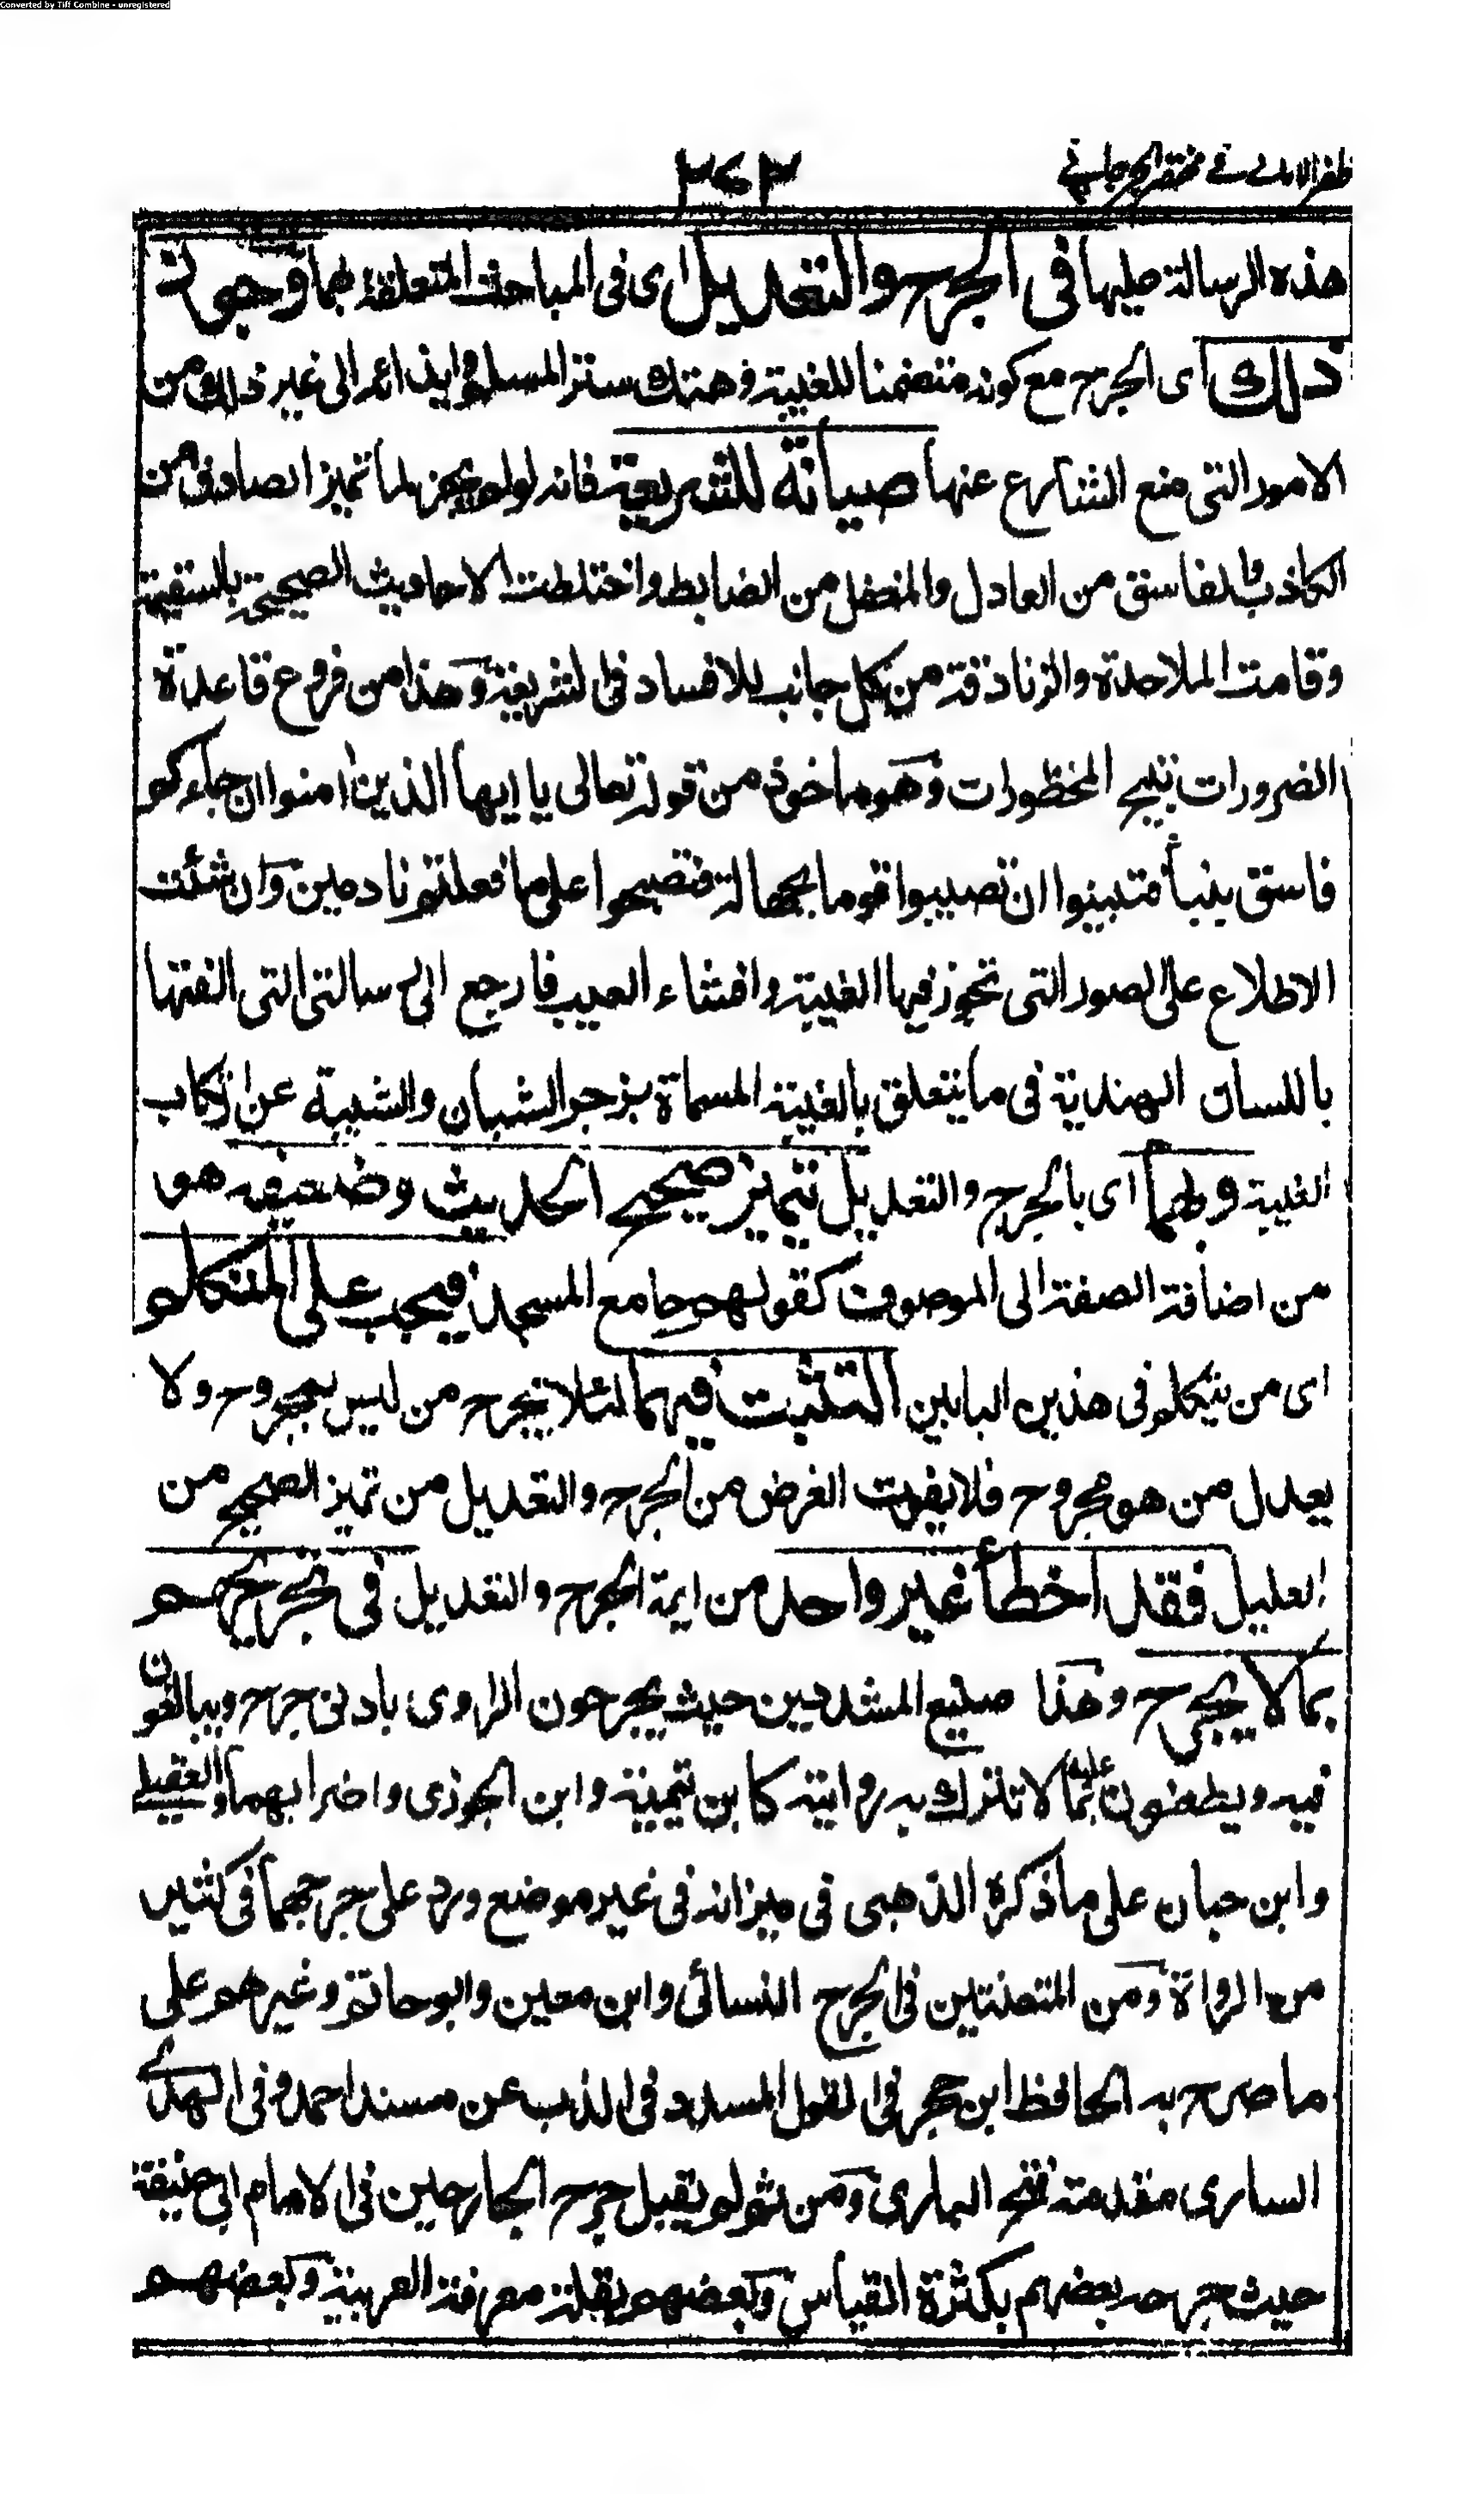 Converted by Tiff Combine - unregistered
ظفر الامانى فى مختصر الجرجانى
٢٧٢
هذه الرسالة عليها فى الجرح والتعديل اى فى المباحث المتعلقة بهما وجوز
ذلك اى الجرح مع كونه متضمنا للغيبة وهتك ستر المسلم وايذائه الى غير ذلك من
الامور التى منع الشارع عنها صيانة للشريعة فانه لو لم يجز لما تميز الصادق من
الكاذب والفاسق من العادل والمغفل من الضابط واختلطت الاحاديث الصحيحة بالسقيمة
وقامت الملاحدة والزنادقة من كل جانب للافساد فى الشريعة وهذا من فروع قاعدة
الضرورات تبيح المحظورات وهو ماخوذ من قوله تعالى يا ايها الذين امنوا ان جاءكم
فاسق بنبأ فتبينوا ان تصيبوا قوما بجهالة فتصبحوا على ما فعلتم نادمين وان شئت
الاطلاع على الصور التى تجوز فيها الغيبة وافشاء العيب فارجع الى رسالتى التى الفتها
باللسان الهندية فى ما يتعلق بالغيبة المسماة بزجر الشبان والشيبة عن ارتكاب
الغيبة وبهما اى بالجرح والتعديل تتميز صحيح الحديث وضعيفه هو
من اضافة الصفة الى الموصوف كقولهم جامع المسجد فيجب على المتكلم
اى من يتكلم فى هذين البابين التثبت فيهما لئلا يجرح من ليس بمجروح ولا
يعدل من هو مجروح فلا يفوت الغرض من الجرح والتعديل من تميز الصحيح من
العليل فقد اخطأ غير واحد من ايمة الجرح والتعديل فى تجريحهم
بما لا يجرح وهذا صنيع المشددين حيث يجرحون الراوى بادنى جرح ويبالغون
فيه ويطعنون عليه بما لا تترك به روايته كابن تيمية وابن الجوزى واضرابهما والعقيلى
وابن حبان على ما ذكره الذهبى فى ميزانه فى غير موضع ورد على جرحهما فى كثير
من الرواة ومن المتعنتين فى الجرح النسائى وابن معين وابو حاتم وغيرهم على
ما صرح به الحافظ ابن حجر فى القول المسدد فى الذب عن مسند احمد وفى الهدى
السارى مقدمة فتح البارى ومن ثم لم يقبل جرح الجارحين فى الامام ابى حنيفة
حيث جرحه بعضهم بكثرة القياس وبعضهم بقلة معرفة العربية وبعضهم